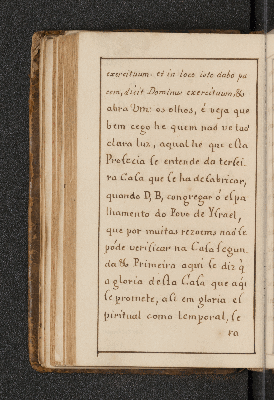 exercituum. et in loco isto dabo pa
cem, dicit Dominus exercituum, &c
abra Vm: os olhos, é veja que
bem cego he quem naõ ve taõ
clara luz, aqual he que esta
Profecia se entende da tersei
ra Casa que se ha de fabricar,
quando D, B, congregar ó espa
lhamento do Povo de Ysrael,
que por muitas rezoems naõ se
póde verificar na Casa segun
da &c Primeira aqui se diz q̃
a gloria desta Casa que aqi
se promete, asi em gloria es
piritual como temporal, se
ra